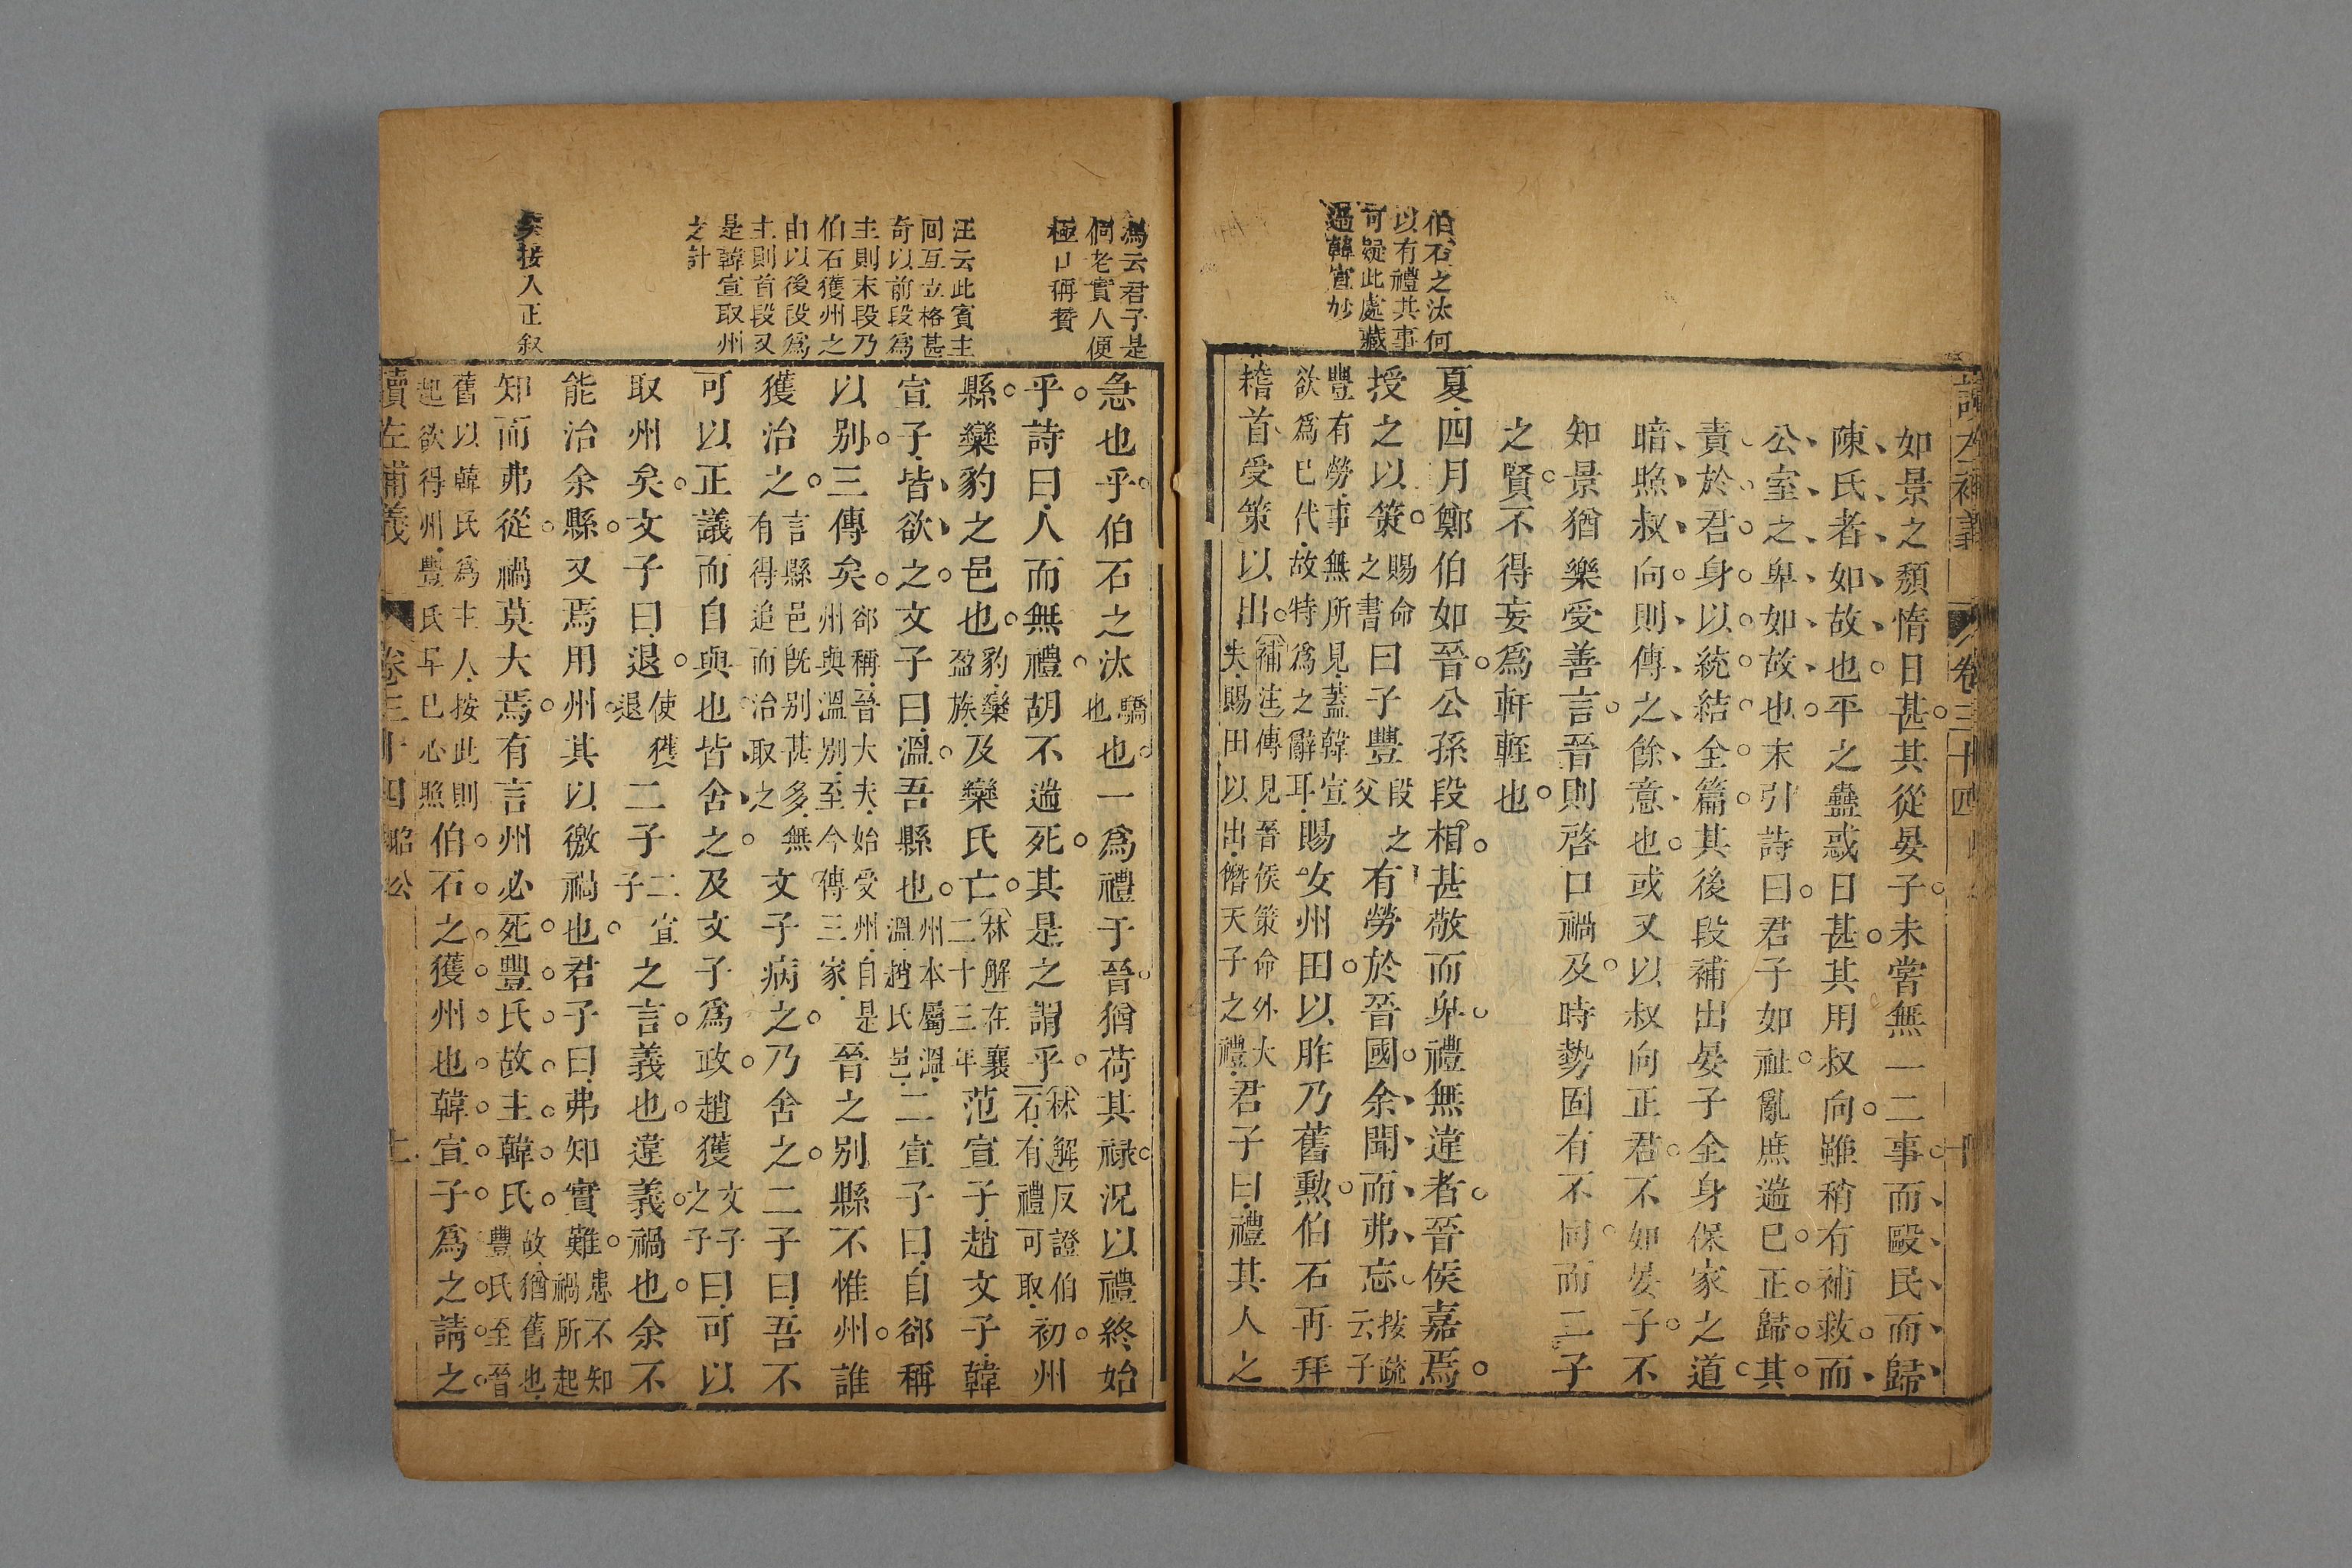 讀左補義
卷三十四
伯石之汰何
以有禮其事
可疑此處藏
過韓宣妙
如景之頹惰日甚其從晏子未嘗無一二事而毆民而歸
陳氏者如故也平之蠱惑日甚其用叔向雖稍有補救而
公室之卑如故也末引詩曰君子如祉亂庶遄已正歸其
責於君身以統結全篇其後段補出晏子全身保家之道
暗照叔向則傳之餘意也或又以叔向正君不如晏子不
知景猶樂受善言晉則啓口禍及時勢固有不同而二子
之賢不得妄爲軒輊也
夏四月鄭伯如晉公孫段相甚敬而卑禮無違者晉侯嘉焉
授之以策賜命之書曰子豐段之父有勞於晉國余聞而弗忘按疏云子
豐有勞事無所見蓋韓宣欲爲已代故特爲之辭耳賜女州田以胙乃舊勲伯石再拜
稽首受策以出補注傳見晉侯策命外大夫賜田以出僭天子之禮君子曰禮其人之
馮云君子是
個老實人便
極口稱贊
汪云此賓主
回互立格甚
奇以前段爲
主則末段乃
伯石獲州之
由以後段爲
主則首段又
是韓宣取州
之計
矣接入正叙
急也乎伯石之汰驕也也一爲禮于晉猶荷其禄況以禮終始
乎詩曰人而無禮胡不遄死其是之謂乎林解反證伯石有禮可取初州
縣欒豹之邑也豹欒盈族及欒氏亡林解在襄二十三年范宣子趙文子韓
宣子皆欲之文子曰溫吾縣也州本屬溫溫趙氏邑二宣子曰自郤稱
以别三傳矣郤稱晉大夫始受州自是州與溫别至今傳三家晉之别縣不惟州誰
獲治之言縣邑旣别甚多無有得追而治取之文子病之乃舍之二子曰吾不
可以正議而自與也皆舍之及文子爲政趙獲文子之子曰可以
取州矣文子曰退使獲退二子二宣子之言義也違義禍也余不
能治余縣又焉用州其以徼禍也君子曰弗知實難患不知禍所起
知而弗從禍莫大焉有言州必死豐氏故主韓氏故猶舊也豐氏至晉
舊以韓氏爲主人按此則起欲得州豐氏早已心照伯石之獲州也韓宣子爲之請之
讀左補義
卷三十四
昭公